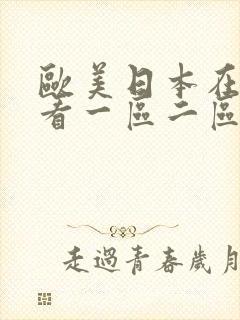 歐美日本在
看一區二區
走過青春歲月